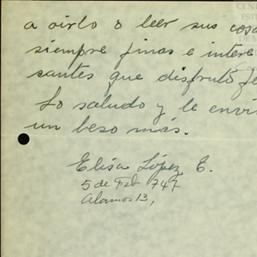 a oirlo o leer sus cosa
siempre finas e intere
santes que disfrutó
Lo saludo y le envi
un beso más.
Elisa López E.
5 de Feb 747
Alamos 13,